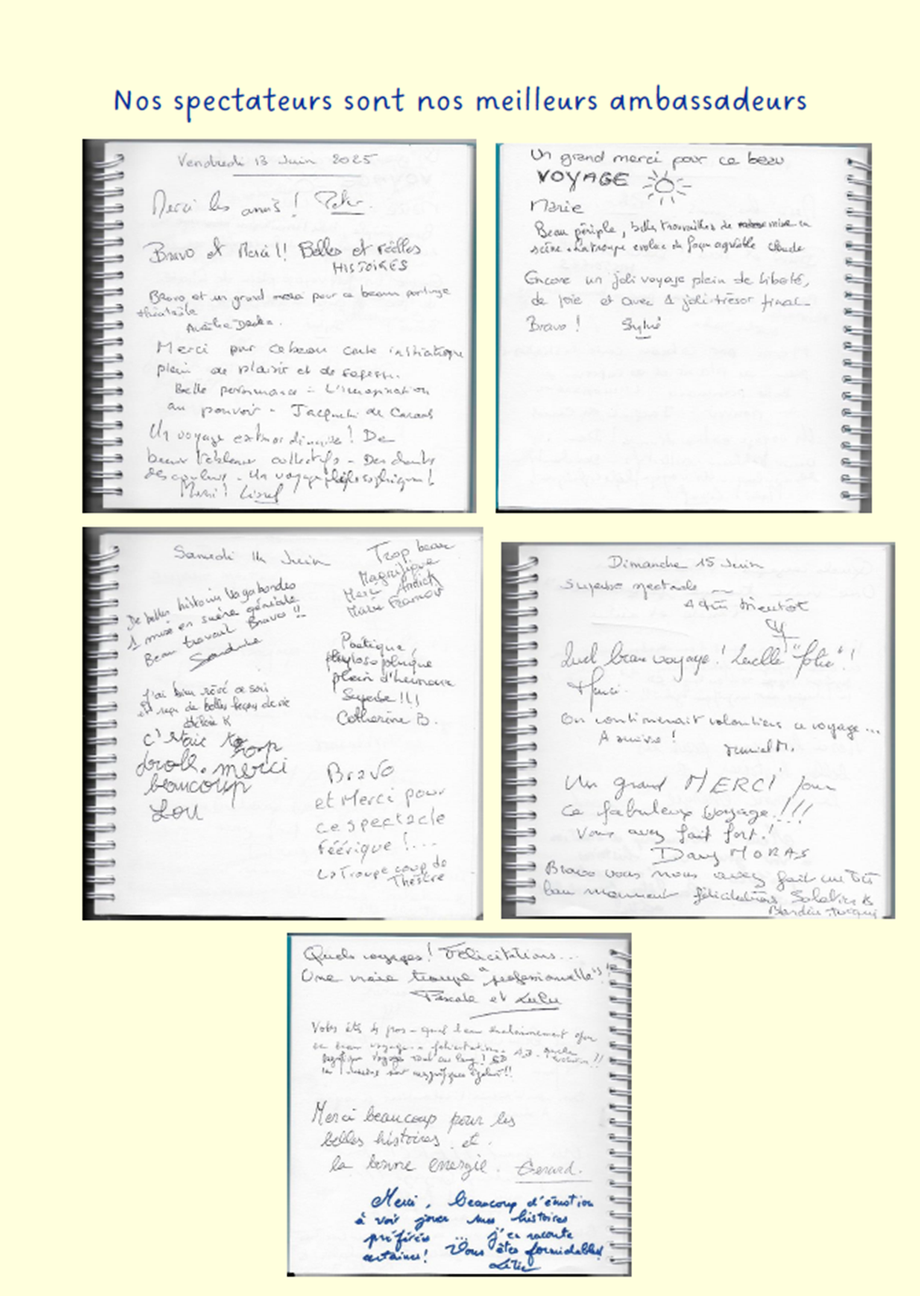 Nos spectateurs sont nos meilleurs ambassadeurs
Vendredi 13 Juin 2025
Merci les amis !
Bravo et Merci !! Belles et réelles
HISTOIRES
Bravo et un grand merci pour ce beau partage
théâtrale
Aurélie
Merci pour ce beau conte initiatique
plein de plaisir et de sagesse.
Belle performance - L'imagination
au pouvoir - Jacqueline de
Un voyage extraordinaire ! De
beaux tableaux collectifs - Des chants
des couleurs - Un voyage philosophique !
Merci ! Lionel
Un grand merci pour ce beau
VOYAGE
Marie
Beau périple, belles trouvailles de mise en
scène et la troupe évolue de façon agréable Claude
Encore un joli voyage plein de liberté,
de joie et avec 1 joli trésor final
Bravo ! Sylvie
Samedi 14 Juin
De belles histoires vagabondes
1 mise en scène géniale
Beau travail Bravo !!
Sandrine
J'ai bien rêvé ce soir
Et reçu de belles leçons de vie
Héloïse K
c'était trop
drôle. merci
beaucoup
Lou
Trop beau
Magnifique
Merci Annick
Marie
Poétique,
phylosophique
plein d'humour
Superbe !!!
Catherine B.
Bravo
et Merci pour
ce spectacle
féérique !...
La Troupe coup de
Théâtre
Dimanche 15 Juin
Superbe spectacle
A très bientôt
Quel beau voyage ! Quelle "folie" !
On continuerait volontiers ce voyage...
A suivre !
Un grand MERCI pour
ce fabuleux voyage !!!
Vous avez fait fort !
Dany MORAS
Bravo vous nous avez fait un très
bon moment félicitations
Quels voyages ! Félicitations...
Une vraie troupe "professionnelle" !
Pascale et Lulu
Vous êtes des pros - quel beau
ce beau voyage - félicitations
voyage tout au long !
sont magnifiques !!
Merci beaucoup pour les
belles histoires et
la bonne énergie. Gérard.
Merci, beaucoup d'émotion
à voir jouer mes histoires
préférées ... j'en raconte
certaines ! Vous êtes formidables !